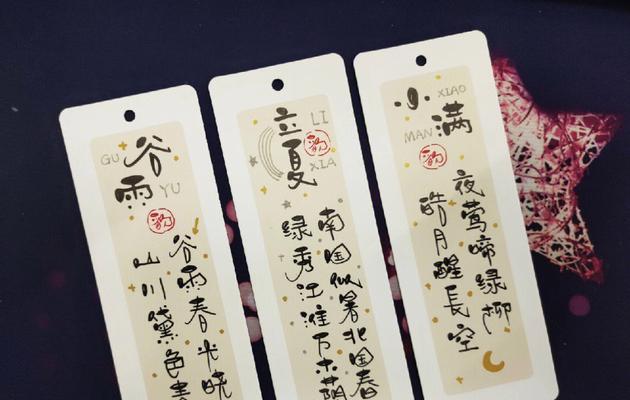 谷雨
GU
YU
谷雨春光晓
山川黛色青
立夏
LI
XIA
南国似暑北国春
绿秀江淮万木荫
小满
XIAO
MAN
夜莺啼绿柳
皓月醒長空